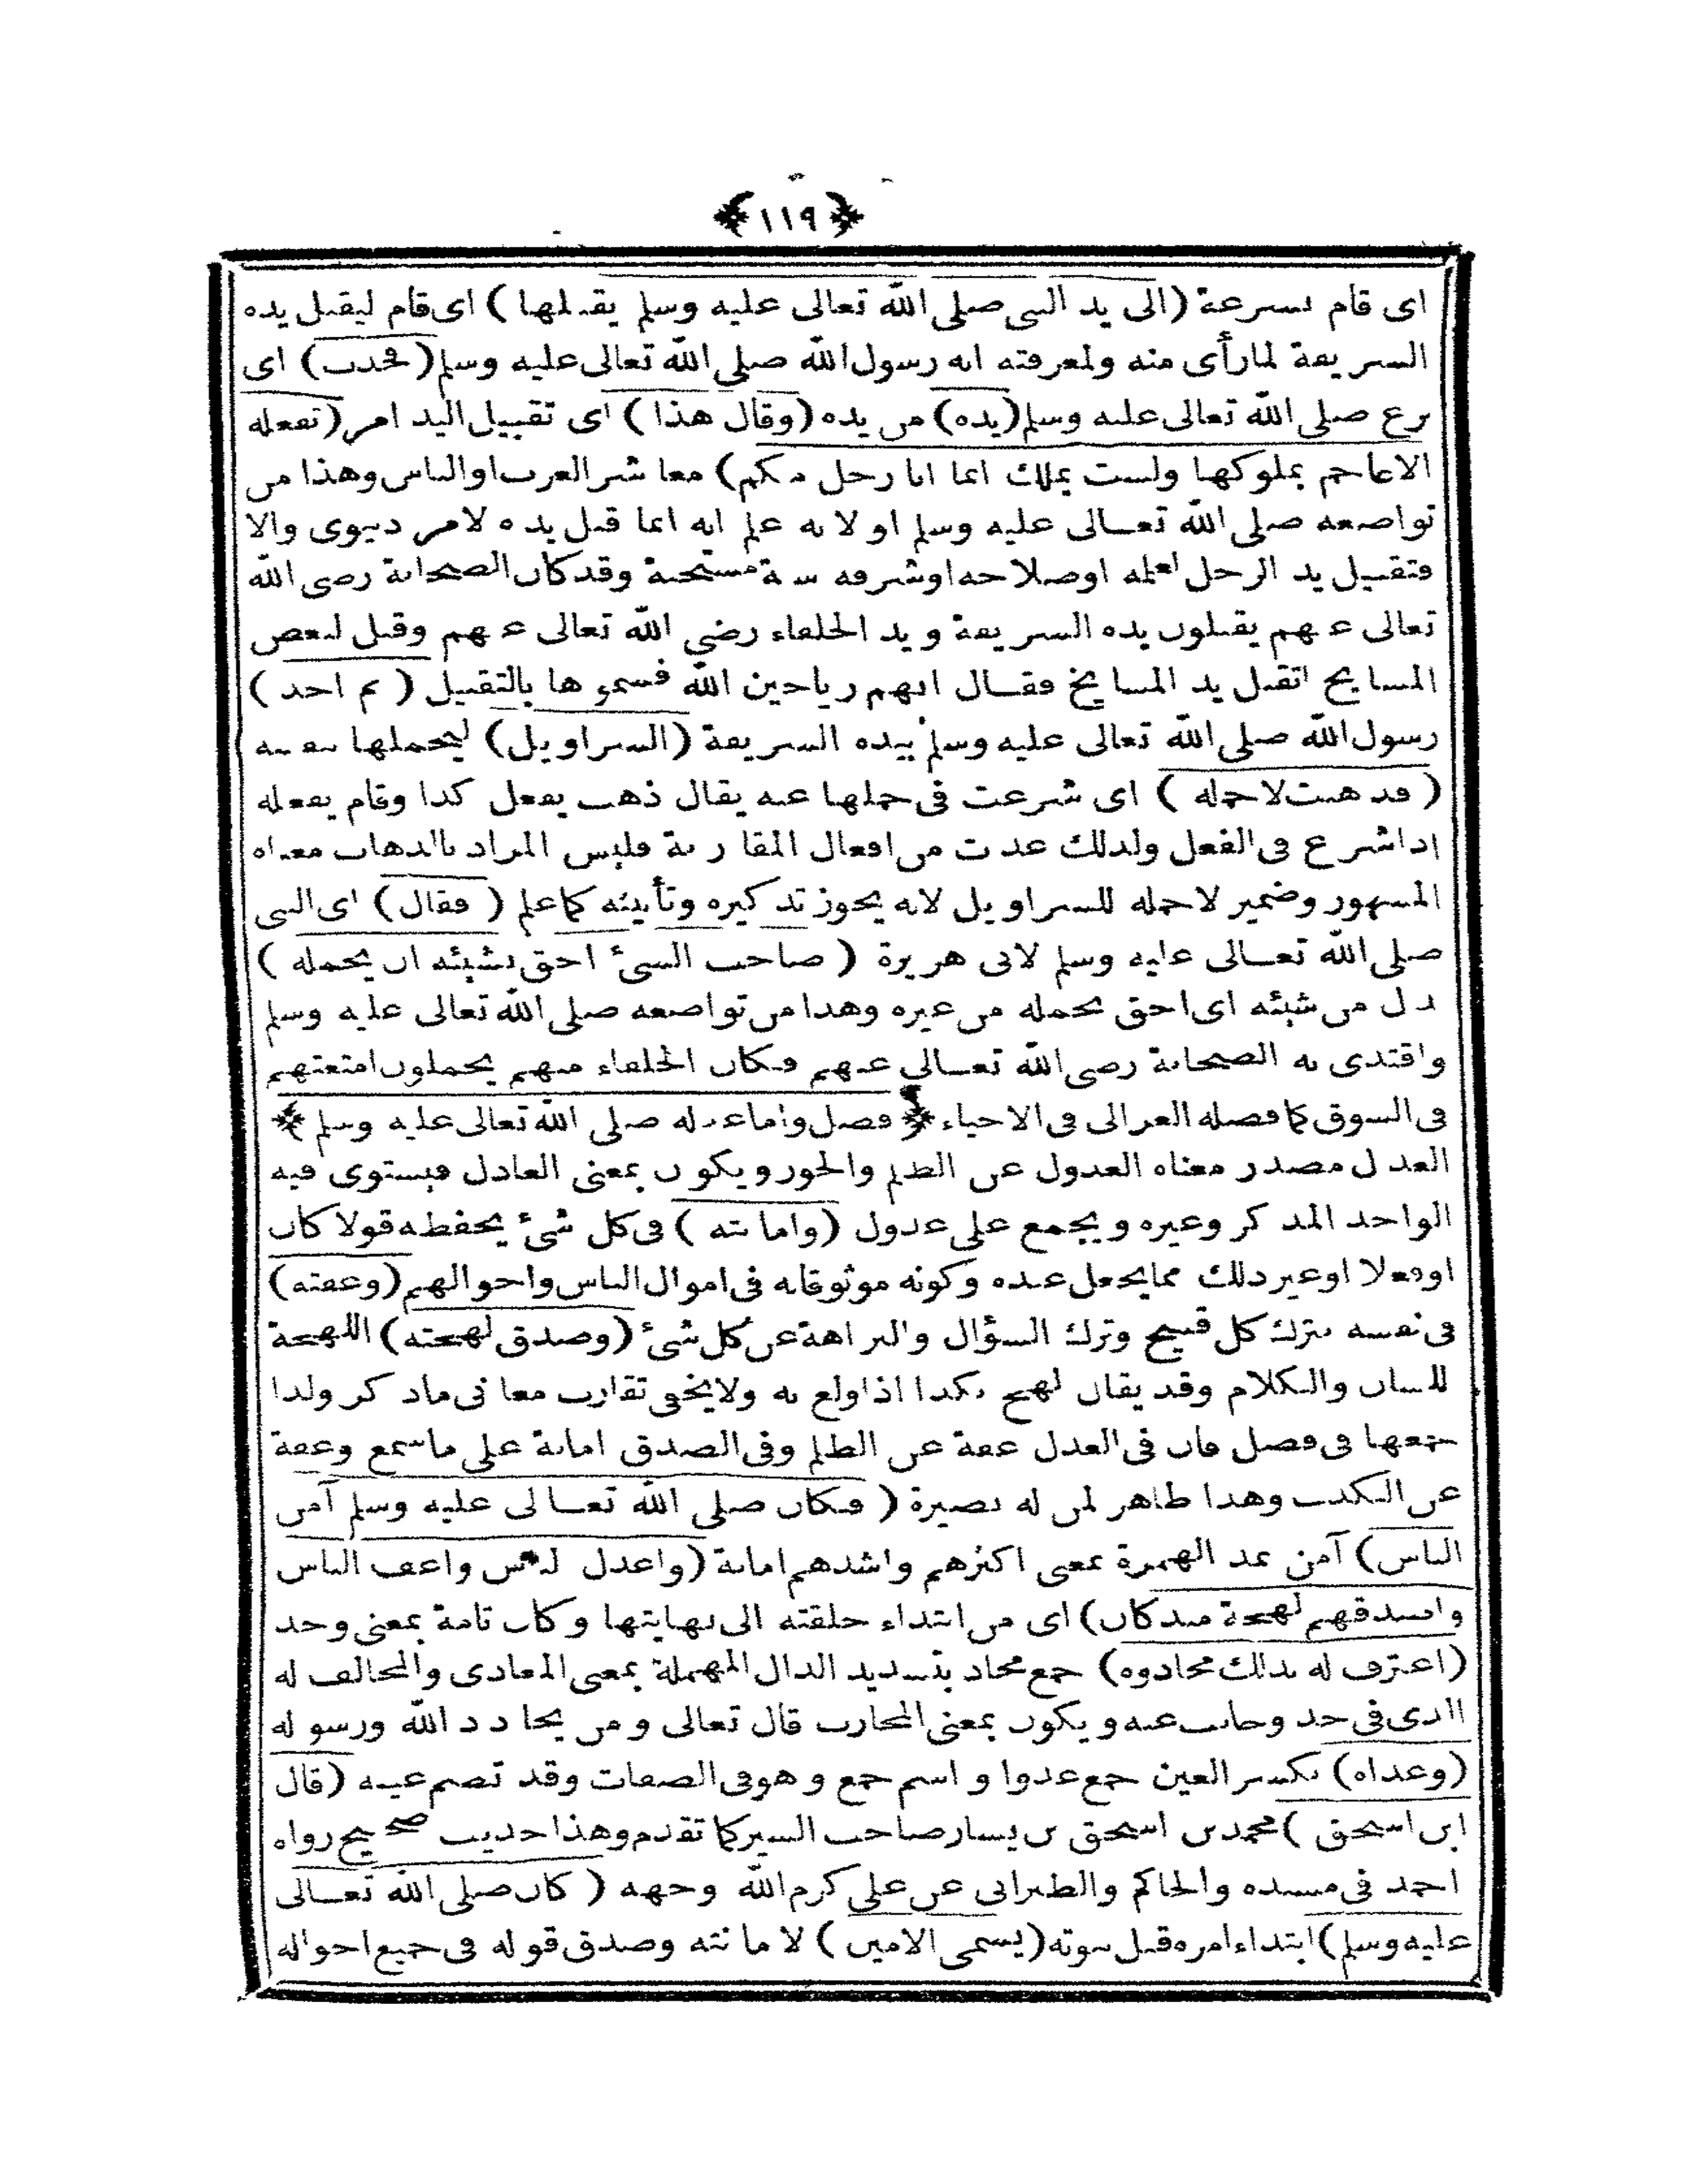 ﴿ ١١٩ ﴾
اى قام بسرعة (الى يد النبى صلى الله تعالى عليه وسلم يقبلها) اى قام ليقبل يده
الشريفة لمارأى منه ولمعرفته انه رسول الله صلى الله تعالى عليه وسلم (فجذب) اى
نزع صلى الله تعالى عليه وسلم (يده) من يده (وقال هذا) اى تقبيل اليد امر (تفعله
الاعاجم بملوكها ولست بملك انما انا رجل منكم) معاشر العرب او الناس وهذا من
تواضعه صلى الله تعالى عليه وسلم او لانه علم انه انما قبل يده لامر دنيوى والا
فتقبيل يد الرجل لعلمه اوصلاحه اوشرفه سنة مستحبة وقد كان الصحابة رضى الله
تعالى عنهم يقبلون يده الشريفة ويد الخلفاء رضى الله تعالى عنهم وقيل لبعض
المشايخ اتقبل يد المشايخ فقال انهم رياحين الله فسموها بالتقبيل (ثم اخذ)
رسول الله صلى الله تعالى عليه وسلم بيده الشريفة (السراويل) ليحملها بنفسه
(فذهبت لاحمله) اى شرعت فى حملها عنه يقال ذهب يفعل كذا وقام يفعله
اذا شرع فى الفعل ولذلك عدت من افعال المقاربة فليس المراد بالذهاب معناه
المشهور وضمير لاحمله للسراويل لانه يجوز تذكيره وتأنيثه كما علم (فقال) اى النبى
صلى الله تعالى عليه وسلم لابى هريرة (صاحب الشىء احق بشيئه ان يحمله)
بدل من شيئه اى احق بحمله من غيره وهذا من تواضعه صلى الله تعالى عليه وسلم
واقتدى به الصحابة رضى الله تعالى عنهم فكان الخلفاء منهم يحملون امتعتهم
فى السوق كما فصله الغزالى فى الاحياء ﴿ فصل واما عدله صلى الله تعالى عليه وسلم ﴾
العدل مصدر معناه العدول عن الظلم والجور ويكون بمعنى العادل فيستوى فيه
الواحد المذكر وغيره ويجمع على عدول (وامانته) فى كل شىء يحفظه قولا كان
اوفعلا اوغير ذلك مما يجعل عنده وكونه موثوقا به فى اموال الناس واحوالهم (وعفته)
فى نفسه بترك كل قبيح وترك السؤال والنزاهة عن كل شىء (وصدق لهجته) اللهجة
اللسان والكلام وقد يقال لهج بكذا اذا ولع به ولا يخفى تقارب معانى ماذكر ولذا
جمعها فى فصل فان فى العدل عفة عن الظلم وفى الصدق امانة على ماسمع وعفة
عن الكذب وهذا ظاهر لمن له بصيرة (فكان صلى الله تعالى عليه وسلم آمن
الناس) آمن بمد الهمزة بمعنى اكثرهم واشدهم امانة (واعدل الناس واعف الناس
واصدقهم لهجة منذ كان) اى من ابتداء خلقته الى نهايتها وكان تامة بمعنى وجد
(اعترف له بذلك محادوه) جمع محاد بتشديد الدال المهملة بمعنى المعادى والمخالف له
الذى فى حد وجانب عنه ويكون بمعنى المحارب قال تعالى ومن يحادد الله ورسوله
(وعداه) بكسر العين جمع عدوا و اسم جمع وهو فى الصفات وقد تضم عينه (قال
ابن اسحق) محمد بن اسحق بن يسار صاحب السير كما تقدم وهذا حديث صحيح رواه
احمد فى مسنده والحاكم والطبرانى عن على كرم الله وجهه (كان صلى الله تعالى
عليه وسلم) ابتداء امره قبل نبوته (يسمى الامين) لامانته وصدق قوله فى جميع احواله